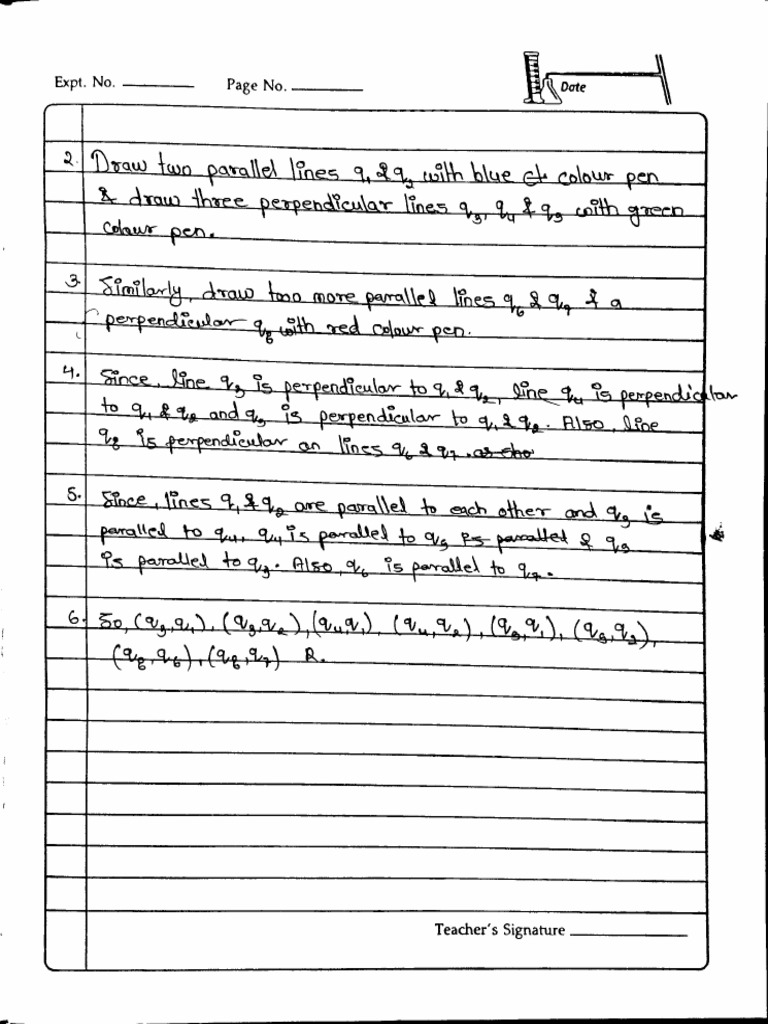 Expt. No. Page No. Date
2. Draw two parallel lines q1 & q2 with blue colour pen
& draw three perpendicular lines q3, q4 & q5 with green
colour pen.
3. Similarly, draw two more parallel lines q6 & q7 & a
perpendicular q8 with red colour pen.
4. Since, line q3 is perpendicular to q1 & q2, line q4 is perpendicular
to q1 & q2 and q5 is perpendicular to q1 & q2. Also, line
q8 is perpendicular on lines q6 & q7.
5. Since, lines q1 & q2 are parallel to each other and q3 is
parallel to q4, q4 is parallel to q5 & q5
is parallel to q3. Also, q6 is parallel to q7.
6. So, (q3,q1), (q3,q2), (q4,q1), (q4,q2), (q5,q1), (q5,q2),
(q8,q6), (q8,q7) R.
Teacher's Signature